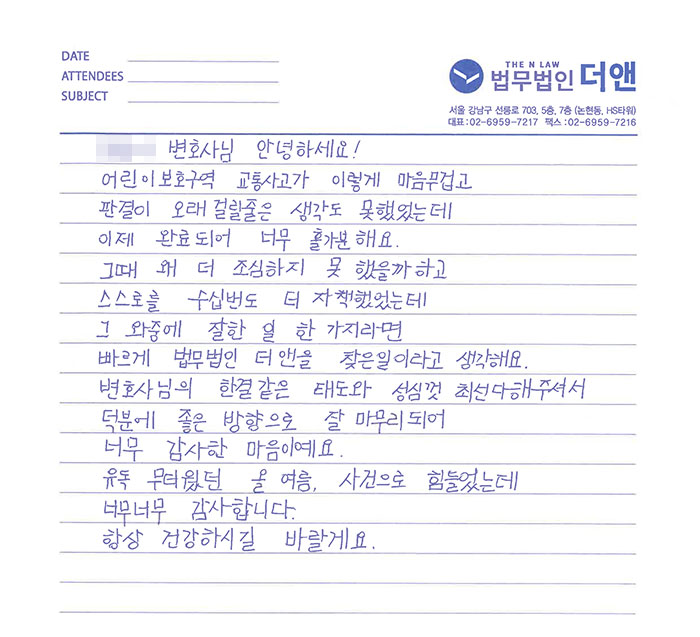 DATE
ATTENDEES
SUBJECT
THE N LAW
법무법인 더앤
서울 강남구 선릉로 703, 5층, 7층 (논현동, HS타워)
대표:02-6959-7217 팩스:02-6959-7216
변호사님 안녕하세요!
어린이보호구역 교통사고가 이렇게 마음무겁고
판결이 오래걸릴줄은 생각도 못했었는데
이제 완료되어 너무 홀가분해요.
그때 왜 더 조심하지 못 했을까하고
스스로를 수십번도 더 자책했었는데
그 와중에 잘한 일 한 가지라면
빠르게 법무법인 더앤을 찾은일이라고 생각해요.
변호사님의 한결같은 태도와 성심껏 최선다해주셔서
덕분에 좋은 방향으로 잘 마무리되어
너무 감사한 마음이예요.
유독 무더웠던 올 여름, 사건으로 힘들었는데
너무너무 감사합니다.
항상 건강하시길 바랄게요.